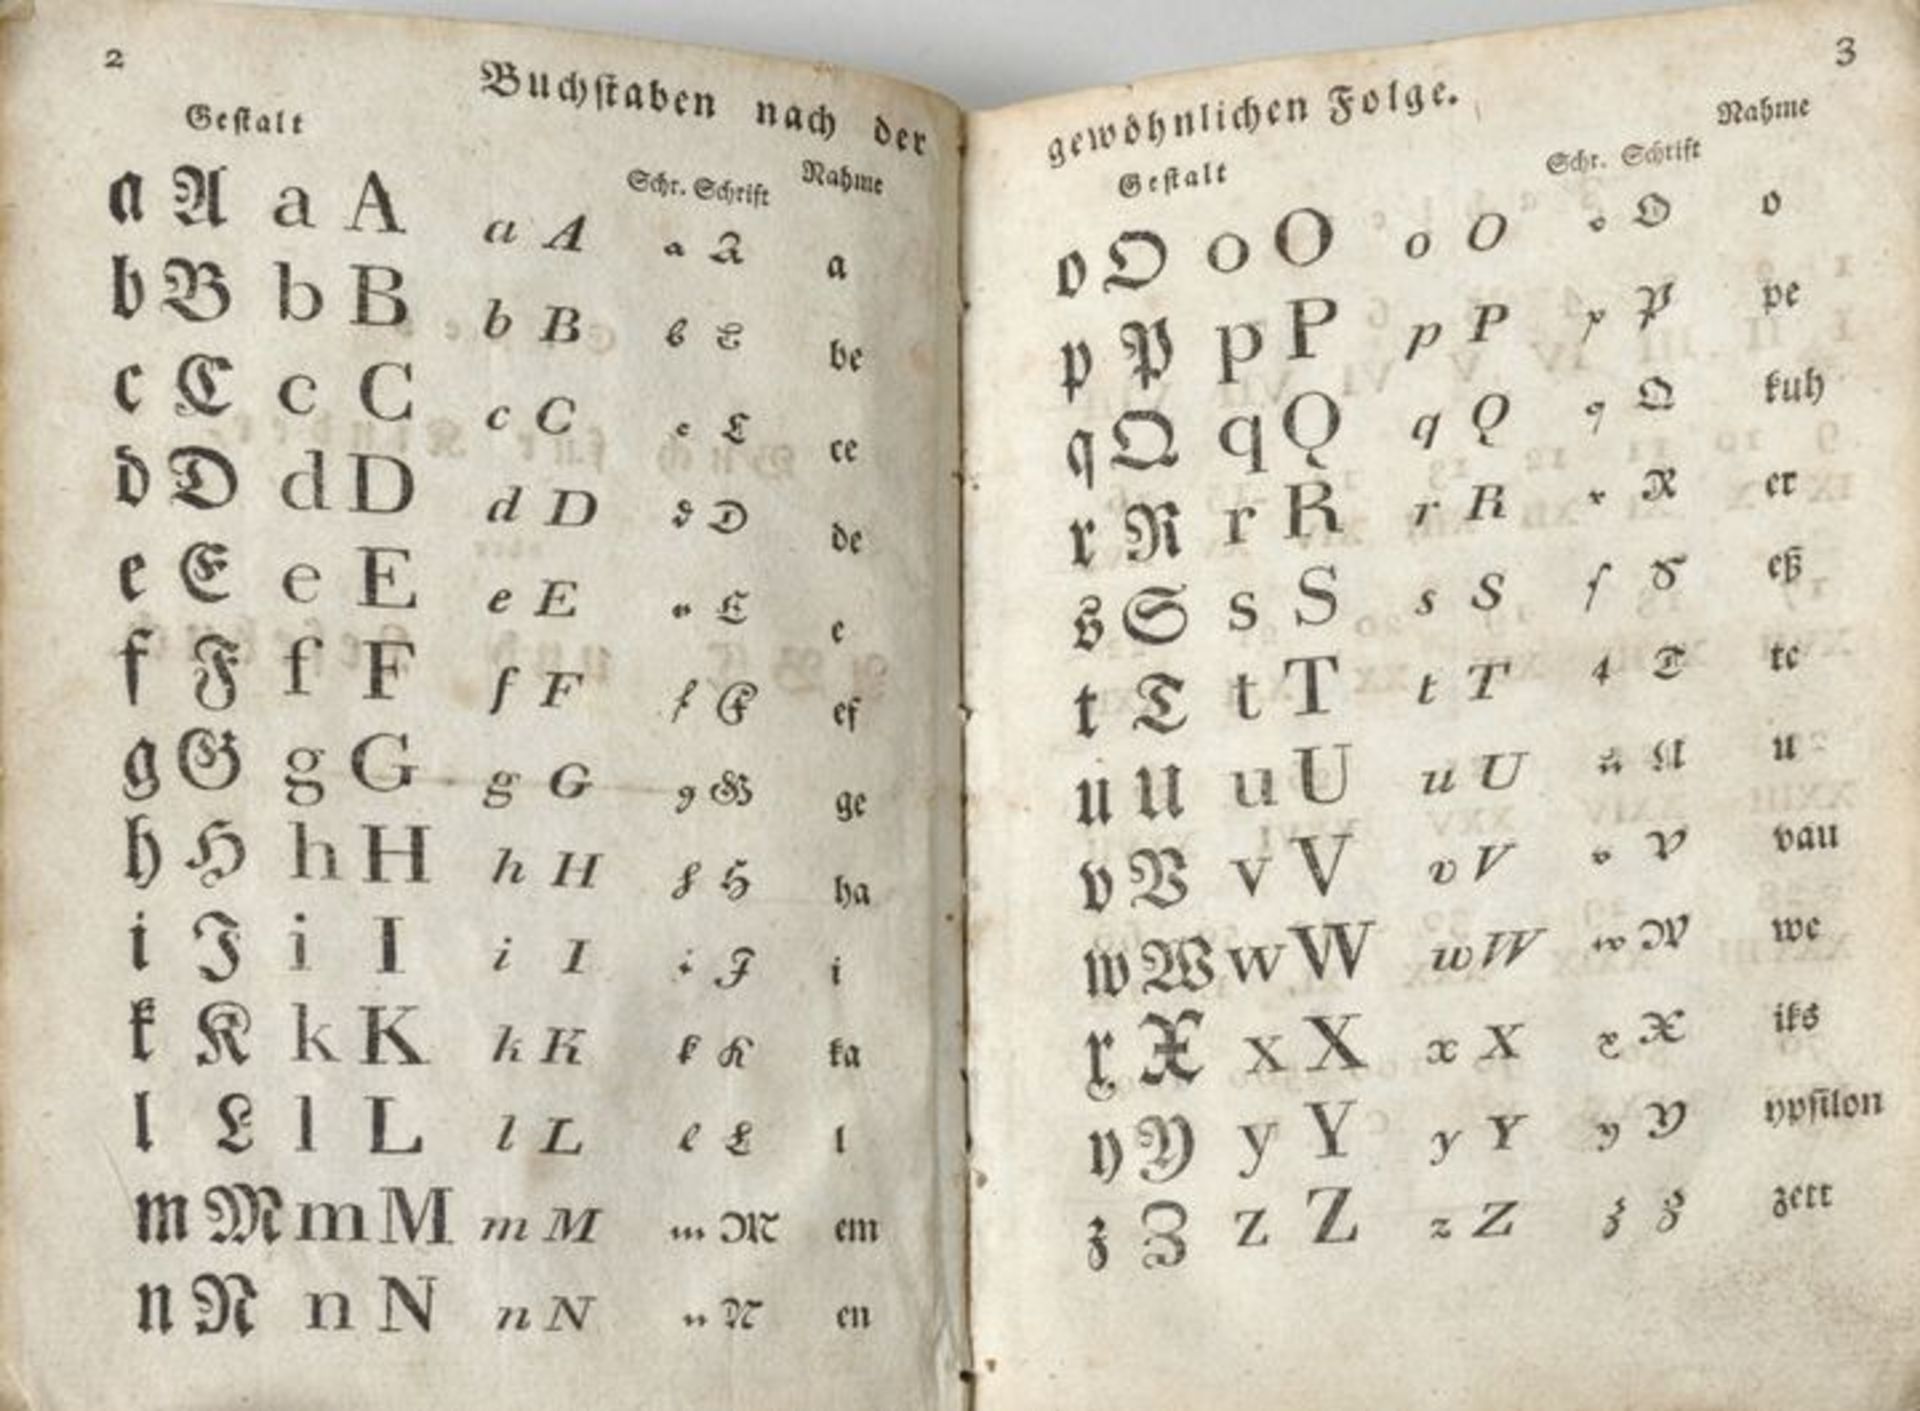 2
Buchstaben nach der
Gestalt Schr. Schrift Nahme
a A a A a A a A a
b B b B b B b B be
c C c C c C c C ce
d D d D d D d D de
e E e E e E e E e
f F f F f F f F ef
g G g G g G g G ge
h H h H h H h H ha
i I i I i I i I i
k K k K k K k K ka
l L l L l L l L l
m M m M m M m M em
n N n N n N n N en
3
gewöhnlichen Folge.
Gestalt Schr. Schrift Nahme
o O o O o O o O o
p P p P p P p P pe
q Q q Q q Q q Q kuh
r R r R r R r R er
s S s S s S ſ S eß
t T t T t T t T te
u U u U u U u U u
v V v V v V v V vau
w W w W w W w W we
x X x X x X x X iks
y Y y Y y Y y Y ypsilon
z Z z Z z Z z Z zett